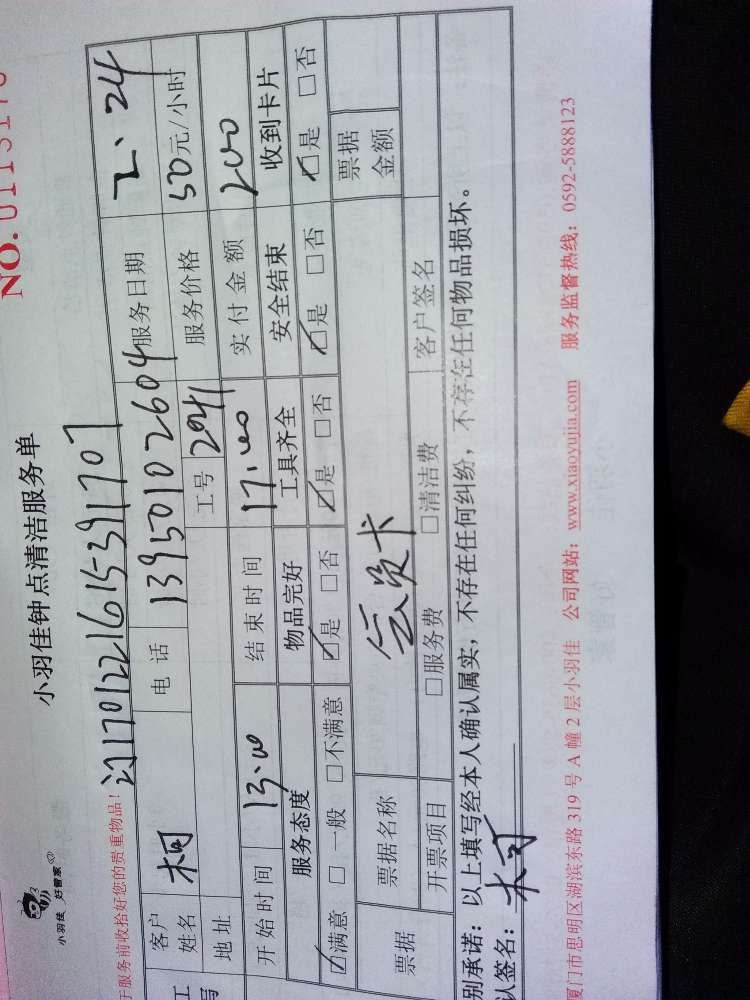 小羽佳 好管家
小羽佳钟点清洁服务单
NO.
于服务前收拾好您的贵重物品！
订1701221615391707
客户姓名 柯 电话 13950102604 服务日期 2、24
地址 工号 2041 服务价格 50元/小时
开始时间 13:00 结束时间 17:00 实付金额 200
服务态度 物品完好 工具齐全 安全结束 收到卡片
☑满意 □一般 □不满意 ☑是 □否 ☑是 □否 ☑是 □否 ☑是 □否
票据 票据名称 会员卡 票据金额
开票项目 □服务费 □清洁费 客户签名
别承诺：以上填写经本人确认属实，不存在任何纠纷，不存在任何物品损坏。
认签名：柯
厦门市思明区湖滨东路 319 号 A 幢 2 层小羽佳 公司网站：www.xiaoyujia.com 服务监督热线：0592-5888123